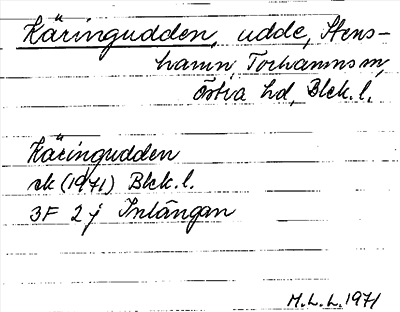 Käringudden, udde, Stens-
hamn Torhamns sn,
Östra hd, Blek. l.
Käringudden
rk (1971) Blek. l.
3F 2 j Inlängan
M. L. L. 1971